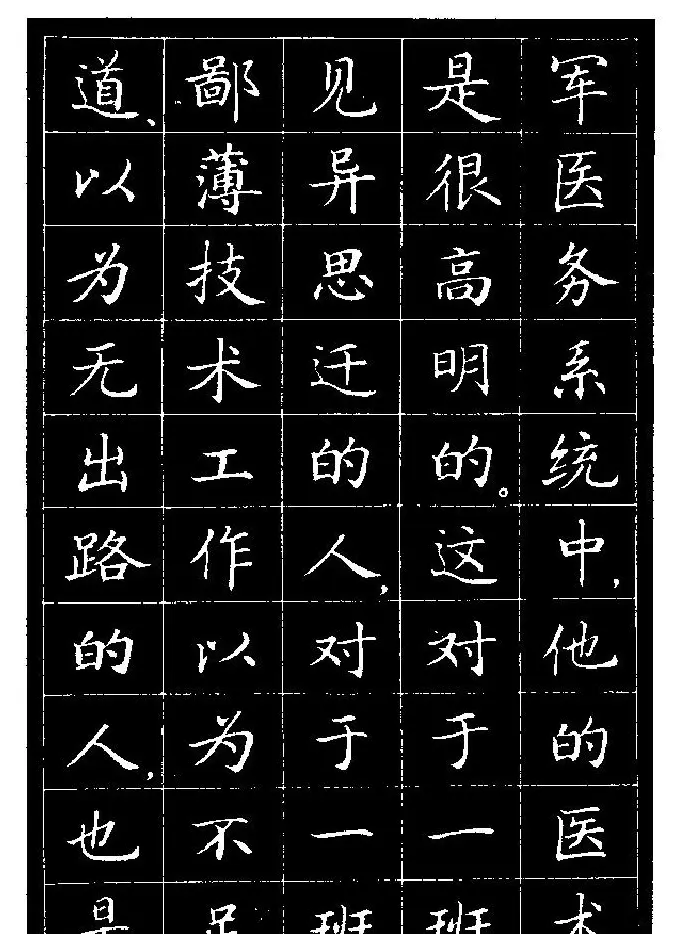 军医务系统中，他的医术
是很高明的。这对于一班
见异思迁的人，对于一班
鄙薄技术工作以为不足
道、以为无出路的人，也是